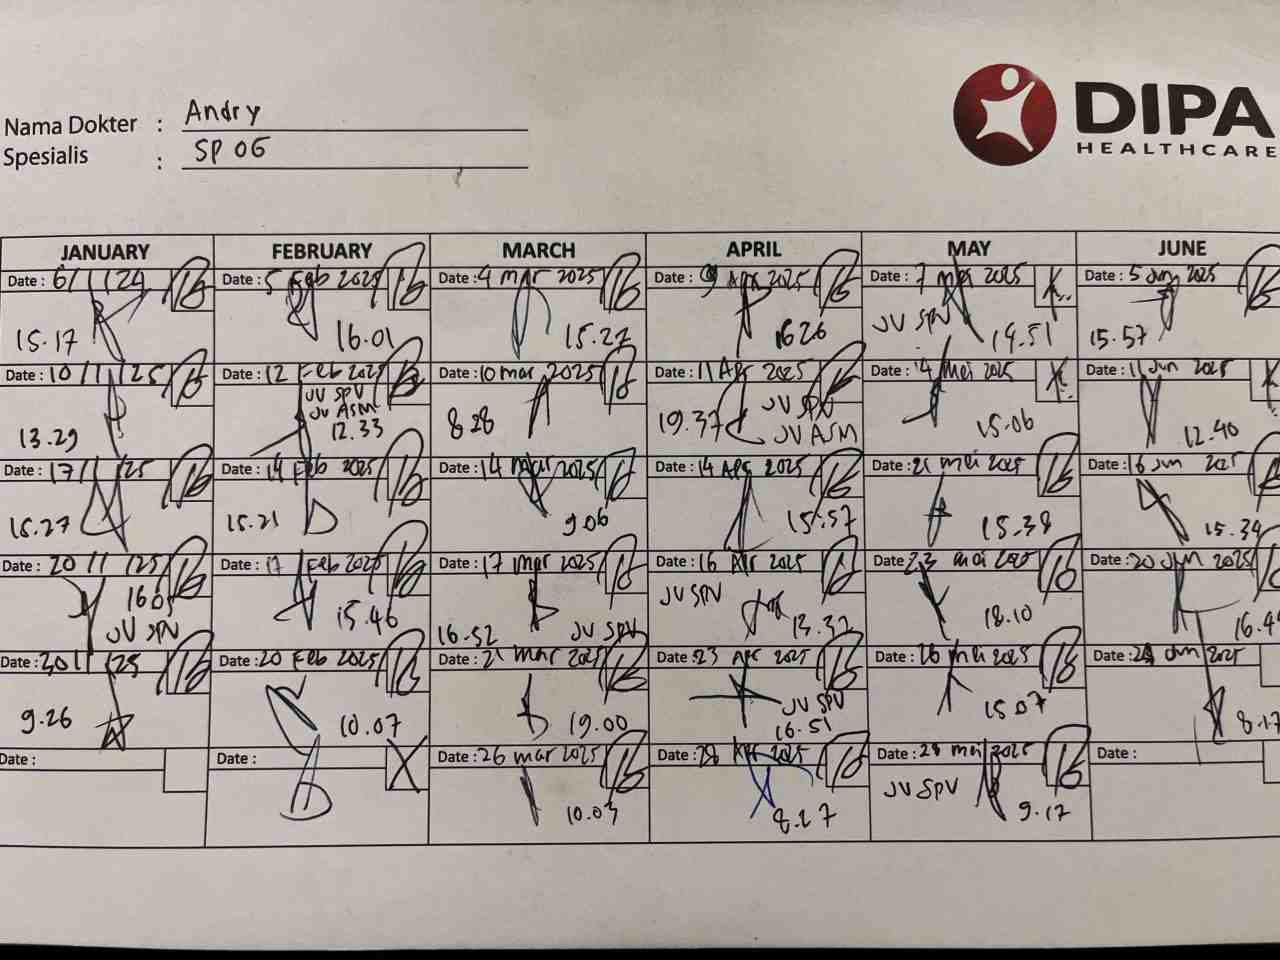 DIPA
HEALTHCARE
Nama Dokter : Andry
Spesialis : SP OG
JANUARY FEBRUARY MARCH APRIL MAY JUNE
Date : 6/1/24 Date : 5 Feb 2025 Date : 4 mar 2025 Date : 9 Apr 2025 Date : 7 mei 2025 Date : 5 Jun 2025
15.17 16.01 15.27 16.26 JV SPV 14.51 15.57
Date : 10/1/25 Date : 12 Feb 2025 Date : 10 mar 2025 Date : 11 Apr 2025 Date : 14 mei 2025 Date : 11 Jun 2025
13.29 JV SPV JV ASM 12.33 8.28 19.37 JV SPV JV ASM 15.06 12.40
Date : 17/1/25 Date : 14 Feb 2025 Date : 14 mar 2025 Date : 14 Apr 2025 Date : 21 mei 2025 Date : 16 Jun 2025
15.27 15.21 9.06 15.57 15.38 15.34
Date : 20/1/25 Date : 17 Feb 2025 Date : 17 mar 2025 Date : 16 Apr 2025 Date : 23 mei 2025 Date : 20 Jun 2025
JV SPV 15.46 16.52 JV SPV JV SPV 13.32 18.10
Date : 30/1/25 Date : 20 Feb 2025 Date : 21 mar 2025 Date : 23 Apr 2025 Date : 26 mei 2025 Date : Jun 2025
9.26 10.07 19.00 JV SPV 16.51 15.07 8.17
Date : Date : Date : 26 mar 2025 Date : 28 Apr 2025 Date : 28 mei 2025 Date :
10.03 8.27 JV SPV 9.17